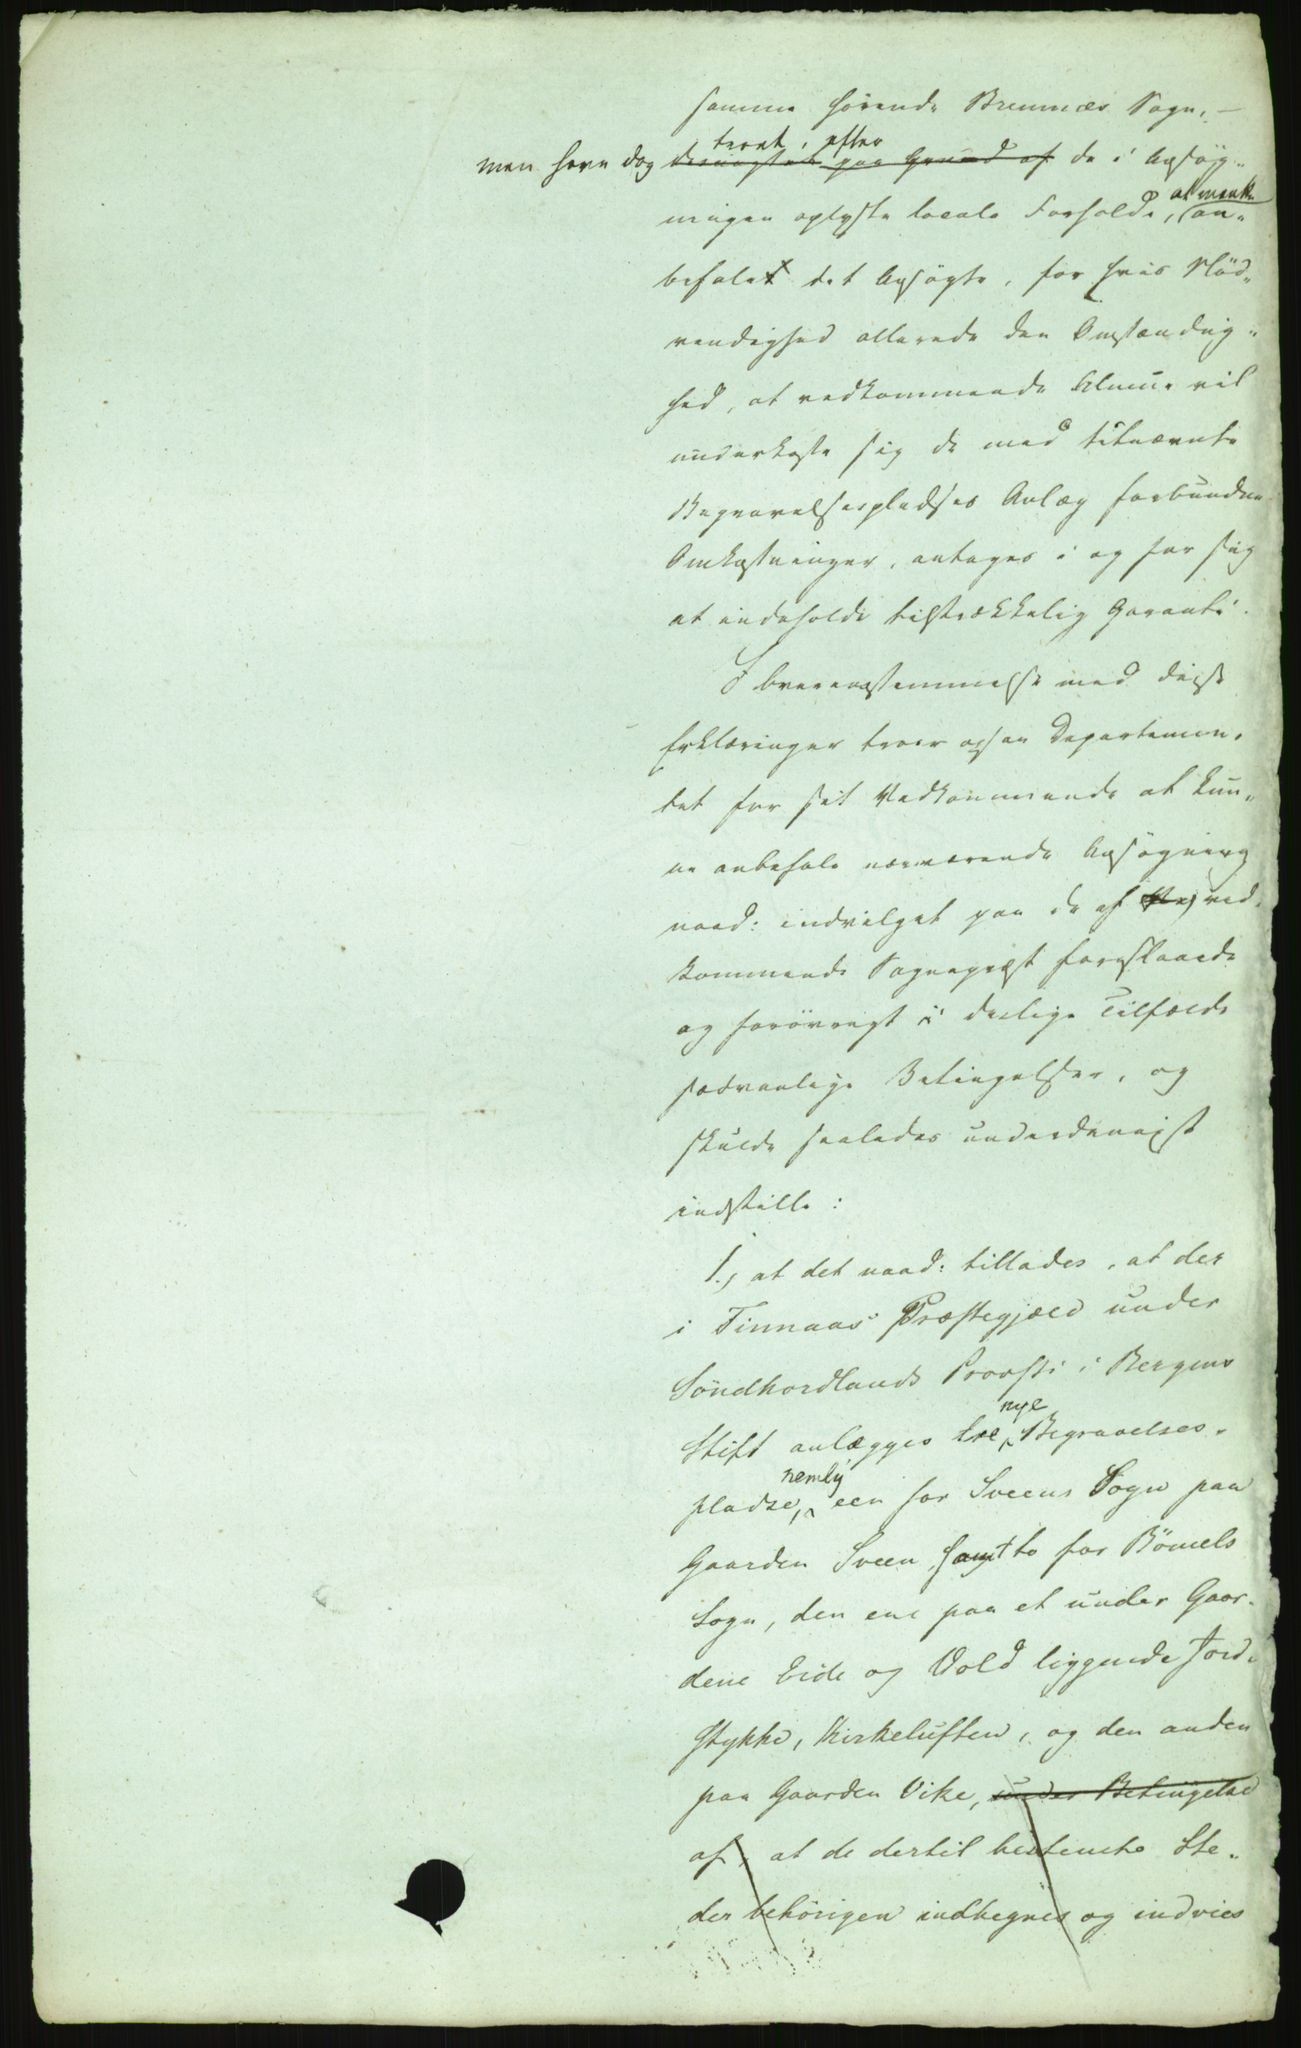 samme hørende Bremnæs Sogn, —
troet, efter
men have dog desuagtet paa Grund af de i Ansøg-
ningen oplyste locale Forholde, at maatte an-
befalet det Ansøgte, for hvis Nød-
vendighed allerede den Omstændig-
hed, at vedkommende Almue vil
underkaste sig de med
Begravelsespladses Anlæg forbundne
Omkostninger, antages i og for sig
at indeholde tilstrækkelig Garanti.
I Overensstemmelse med disse
Erklæringer troer ogsaa Departemen-
tet for sit Vedkommende at kun-
ne anbefale nærværende Ansøgning
naad: indvilget paa de af ved-
kommende Sognepræst foreslaaede
og forøvrigt i deslige Tilfælde
sædvanlige Betingelser, og
skulde saaledes underdanigst
indstille:
1., at det naad: tillades, at der
i Finnaas Præstegjæld under
Søndhordlands Provsti i Bergens
Stift anlægges tre nye Begravelses-
pladse, nemlig een for Sveens Sogn paa
Gaarden Sveen samt to for Bömels
Sogn, den ene paa et under Gaar-
dene Eide og Vold liggende Jord-
stykke, Kirketuften, og den anden
paa Gaarden Vike, under Betingelse
af, at de dertil bestemte Ste-
der behörigen indhegnes og indvies